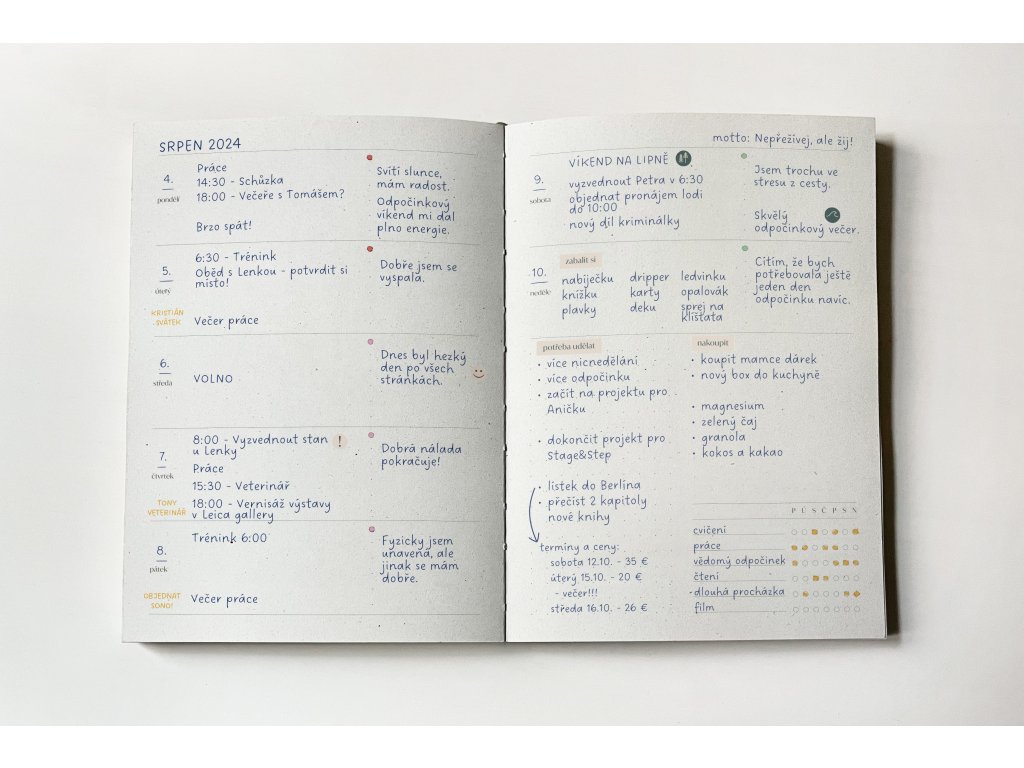 SRPEN 2024
4.
pondělí
Práce
14:30 - Schůzka
18:00 - Večeře s Tomášem?
Brzo spát!
Svítí slunce,
mám radost.
Odpočinkový
víkend mi dal
plno energie.
5.
úterý
6:30 - Trénink
Oběd s Lenkou - potvrdit si
místo!
KRISTIÁN
SVÁTEK
Večer práce
Dobře jsem se
vyspala.
6.
středa
VOLNO
Dnes byl hezký
den po všech
stránkách.
7.
čtvrtek
8:00 - Vyzvednout stan !
u Lenky
Práce
15:30 - Veterinář
TONY
VETERINÁŘ
18:00 - Vernisáž výstavy
v Leica gallery
Dobrá nálada
pokračuje!
8.
pátek
Trénink 6:00
OBJEDNAT
SONO!
Večer práce
Fyzicky jsem
unavená, ale
jinak se mám
dobře.
motto: Nepřežívej, ale žij!
9.
sobota
VÍKEND NA LIPNĚ
vyzvednout Petra v 6:30
objednat pronájem lodi
do 10:00
nový díl kriminálky
Jsem trochu ve
stresu z cesty.
Skvělý
odpočinkový večer.
10.
neděle
zabalit si
nabíječku
knížku
plavky
dripper
karty
deku
ledvinku
opalovák
sprej na
klíšťata
Cítím, že bych
potřebovala ještě
jeden den
odpočinku navíc.
potřeba udělat
• více nicnedělání
• více odpočinku
• začít na projektu pro
Aničku
• dokončit projekt pro
Stage&Step
• lístek do Berlína
• přečíst 2 kapitoly
nové knihy
termíny a ceny:
sobota 12.10. - 35 €
úterý 15.10. - 20 €
- večer!!!
středa 16.10. - 26 €
nakoupit
• koupit mamce dárek
• nový box do kuchyně
• magnesium
• zelený čaj
• granola
• kokos a kakao
P Ú S Č P S N
cvičení
práce
vědomý odpočinek
čtení
dlouhá procházka
film